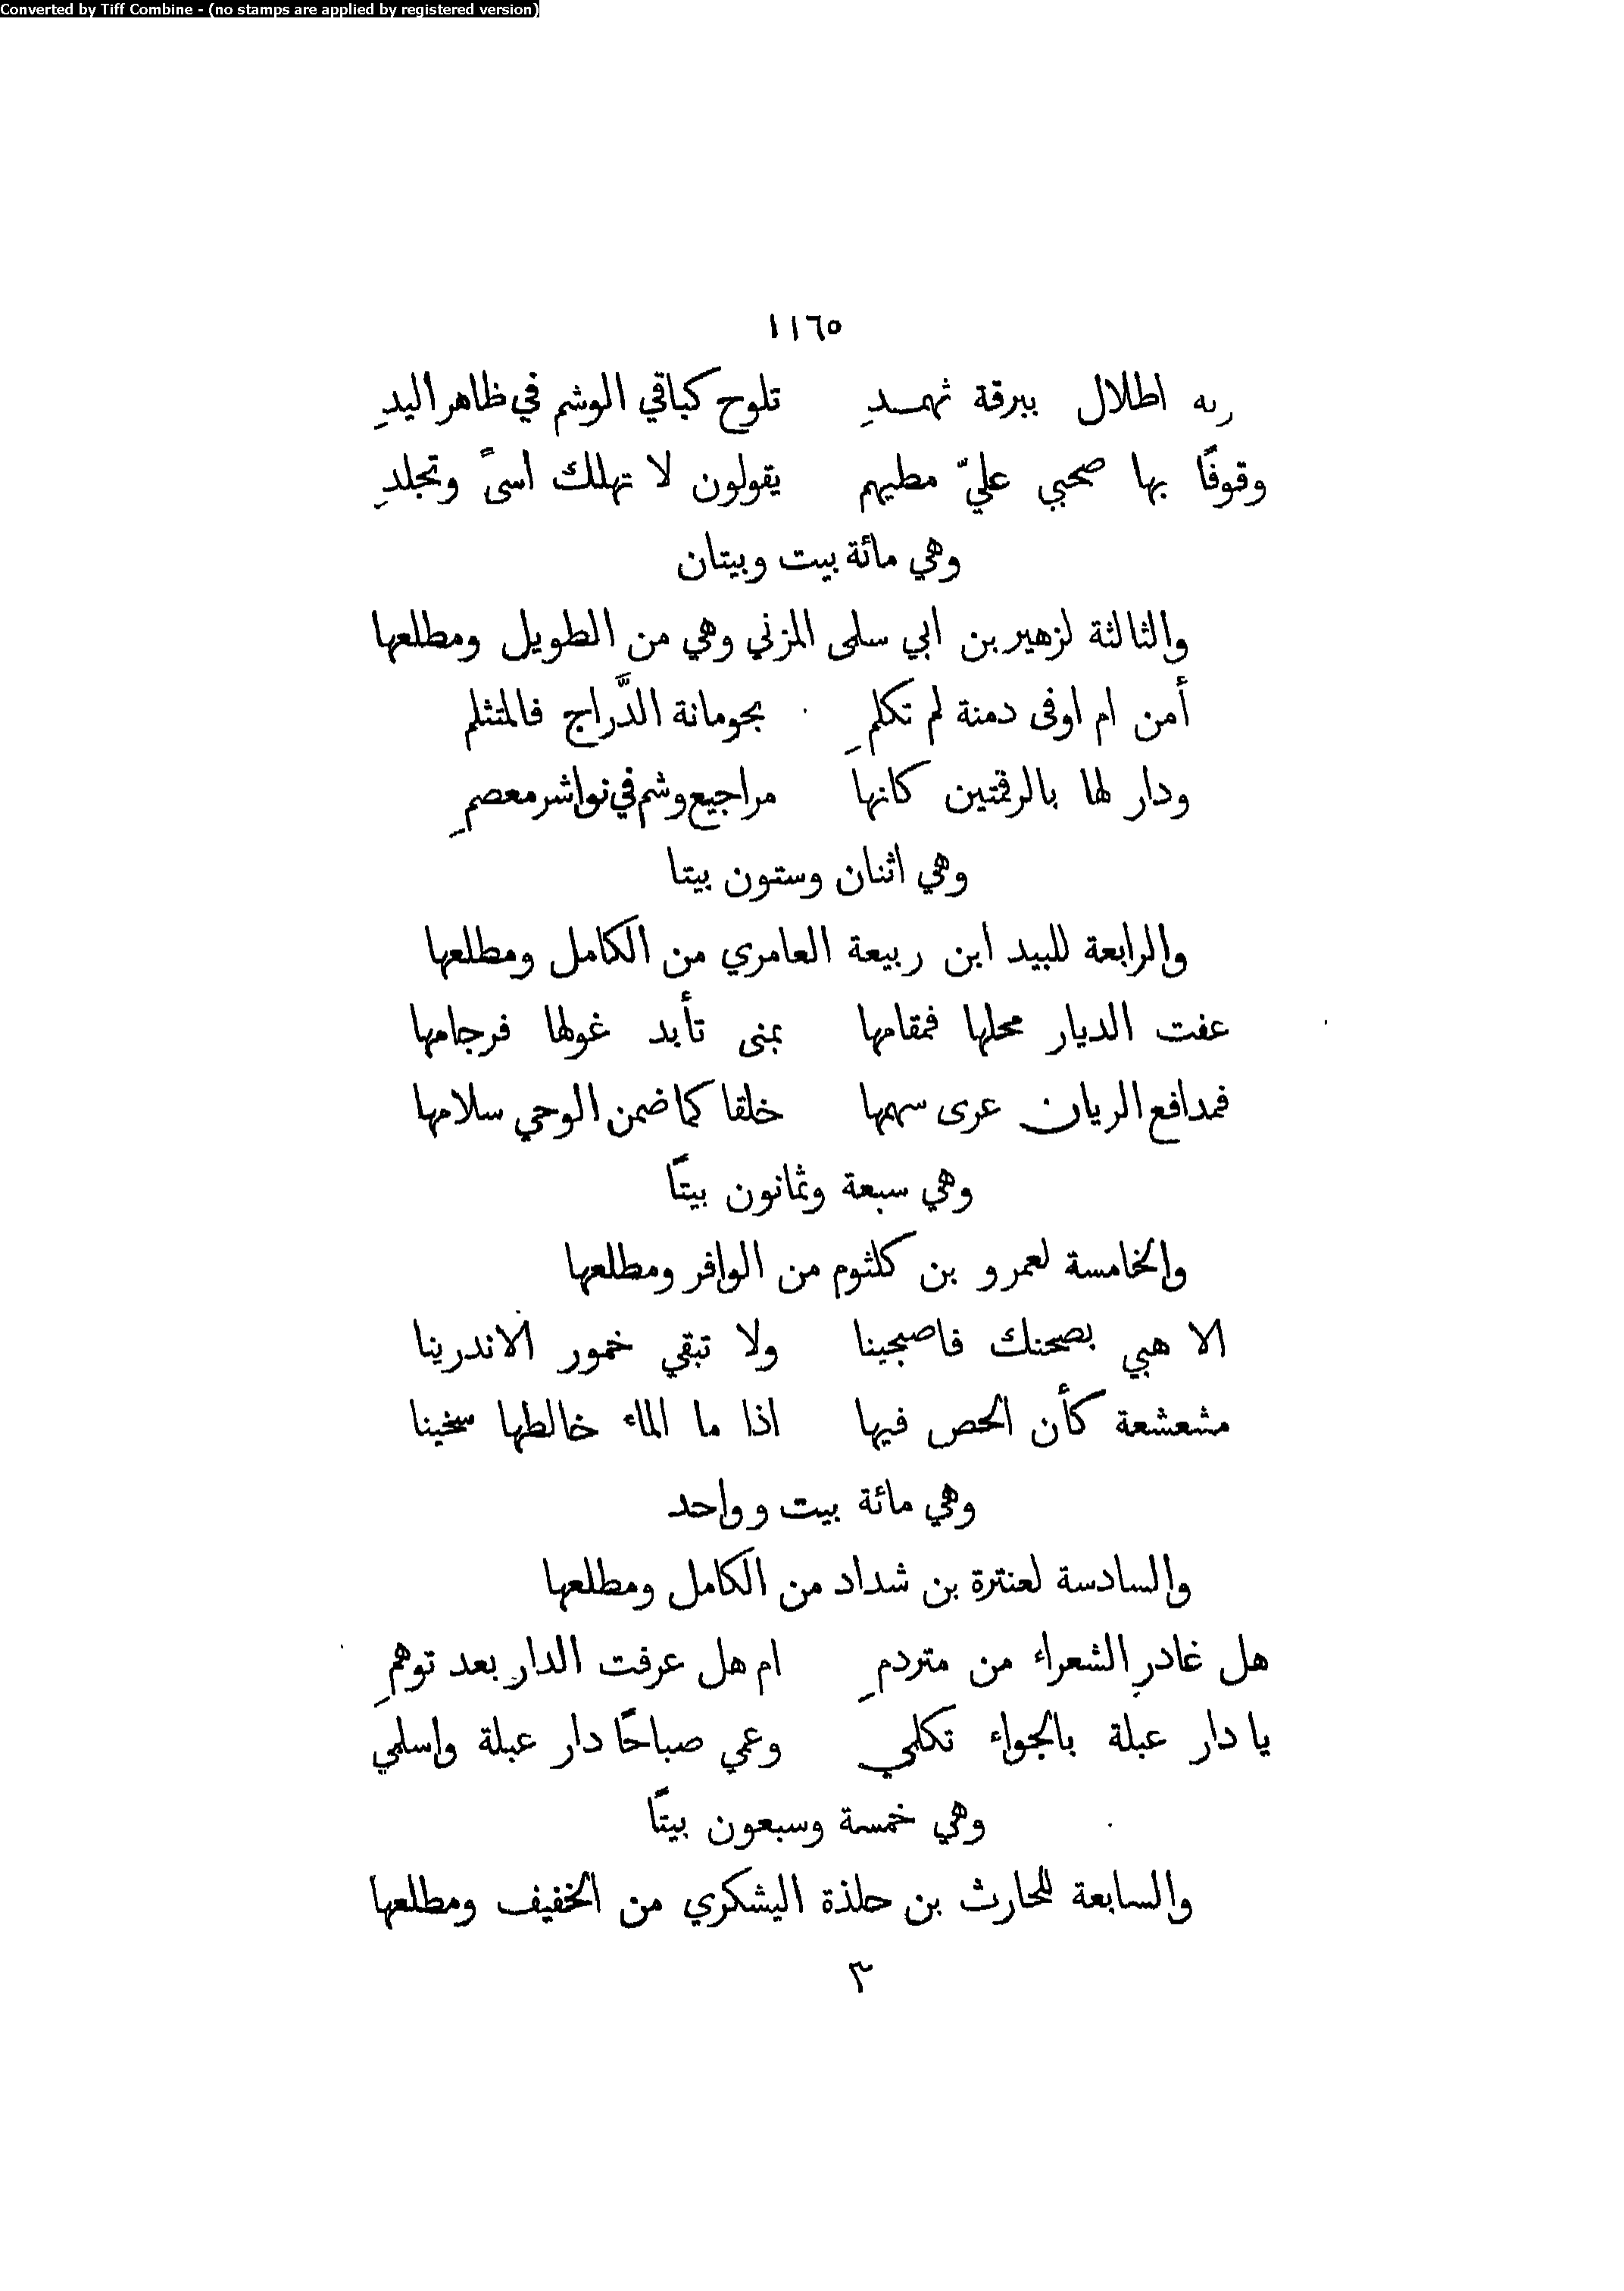 Converted by Tiff Combine - (no stamps are applied by registered version)
١١٦٥
اطلال ببرقة ثهمـدِ تلوح كباقي الوشم في ظاهر اليدِ
وقوفًا بها صحبي عليّ مطيهم يقولون لا تهلك اسىً وتجلدِ
وهي مائة بيت وبيتان
والثالثة لزهير بن ابي سلمى المزني وهي من الطويل ومطلعها
أمن ام اوفى دمنة لم تكلمِ بحومانة الدَّراج فالمتثلم
ودار لها بالرقمتين كانها مراجيع وشم في نواشر معصمِ
وهي اثنان وستون بيتا
والرابعة للبيد ابن ربيعة العامري من الكامل ومطلعها
عفت الديار محلها فمقامها بمنى تأبد غولها فرجامها
فمدافع الريان عرى سهمها خلقا كما ضمن الوحي سلامها
وهي سبعة وثمانون بيتًا
والخامسة لعمرو بن كلثوم من الوافر ومطلعها
الا هبي بصحنك فاصبحينا ولا تبقي خمور الاندرينا
مشعشعة كأن الحص فيها اذا ما الماء خالطها سخينا
وهي مائة بيت وواحد
والسادسة لعنترة بن شداد من الكامل ومطلعها
هل غادر الشعراء من متردمِ ام هل عرفت الدار بعد توهمِ
يا دار عبلة بالجواء تكلمي وعمي صباحًا دار عبلة واسلمي
وهي خمسة وسبعون بيتًا
والسابعة للحارث بن حلذة اليشكري من الخفيف ومطلعها
٣